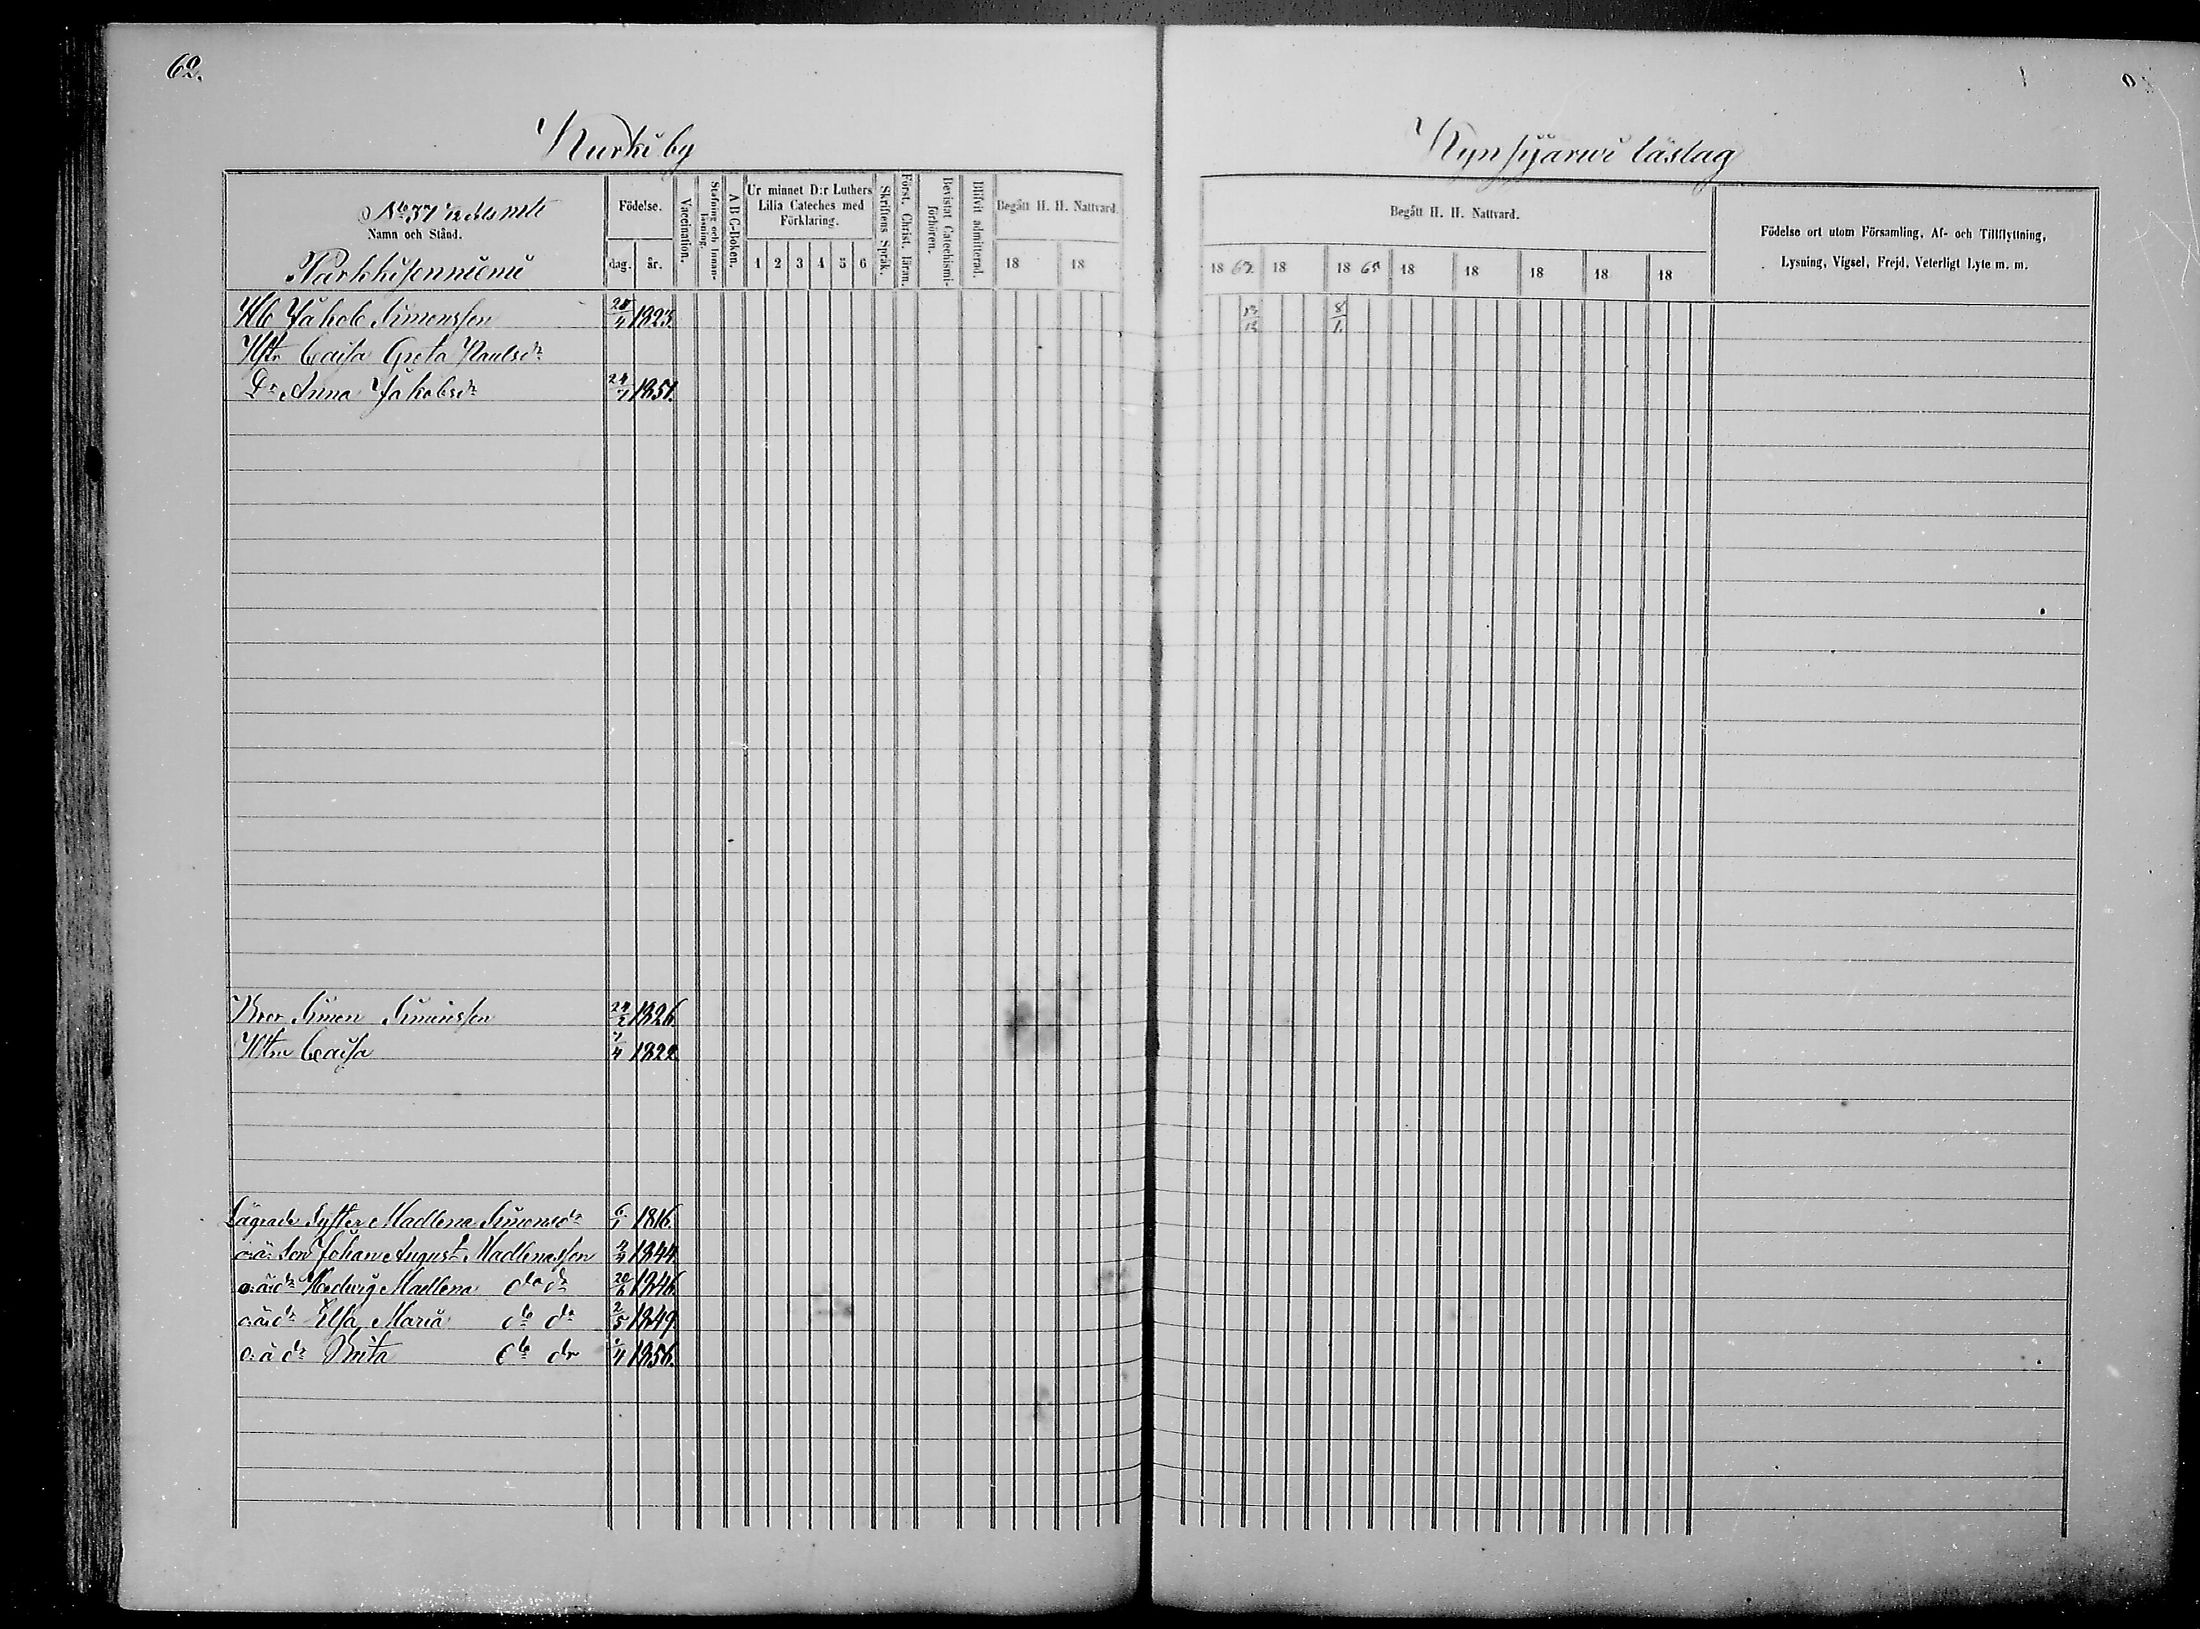 62.
Kurki by
No 37 1/12 mtl
Namn och Stånd.
Parkkisenniemi
Födelse.
dag.
år.
Vaccination.
Stafning och Innanläsning.
A B C-Boken.
Ur minnet D:r Luthers
Lilla Cateches med
Förklaring.
1 2 3 4 5 6
Skriftens Språk.
Först. Christ. läran.
Bevistat Catechismi-
förhören.
Blifvit admitterad.
Begått H. H. Nattvard.
18 18
Hb Jakob Simonsson 1823.
Hstr Caisa Greta Paulsdr
Dr Anna Jakobsdr 24/7 1851.
Bror Simon Simonsson 24/2 1826.
Hstru Caisa 1822
Lägrade Syster Madlena Simonsdr 6/1 1816.
o.ä. Son Johan August Madlenasson 1844.
o.ä.dr Hedvig Madlena do dr 20/6 1846.
o.ä.dr Elsa Maria do dr 2/5 1849.
o.ä dr Brita do dr 1856.
Kynsijärwi läslag
Begått H. H. Nattvard.
18 62 18 18 65 18 18 18 18 18
Födelse ort utom Församling, Af- och Tillflyttning,
Lysning, Vigsel, Frejd, Veterligt Lyte m. m.
8/1.